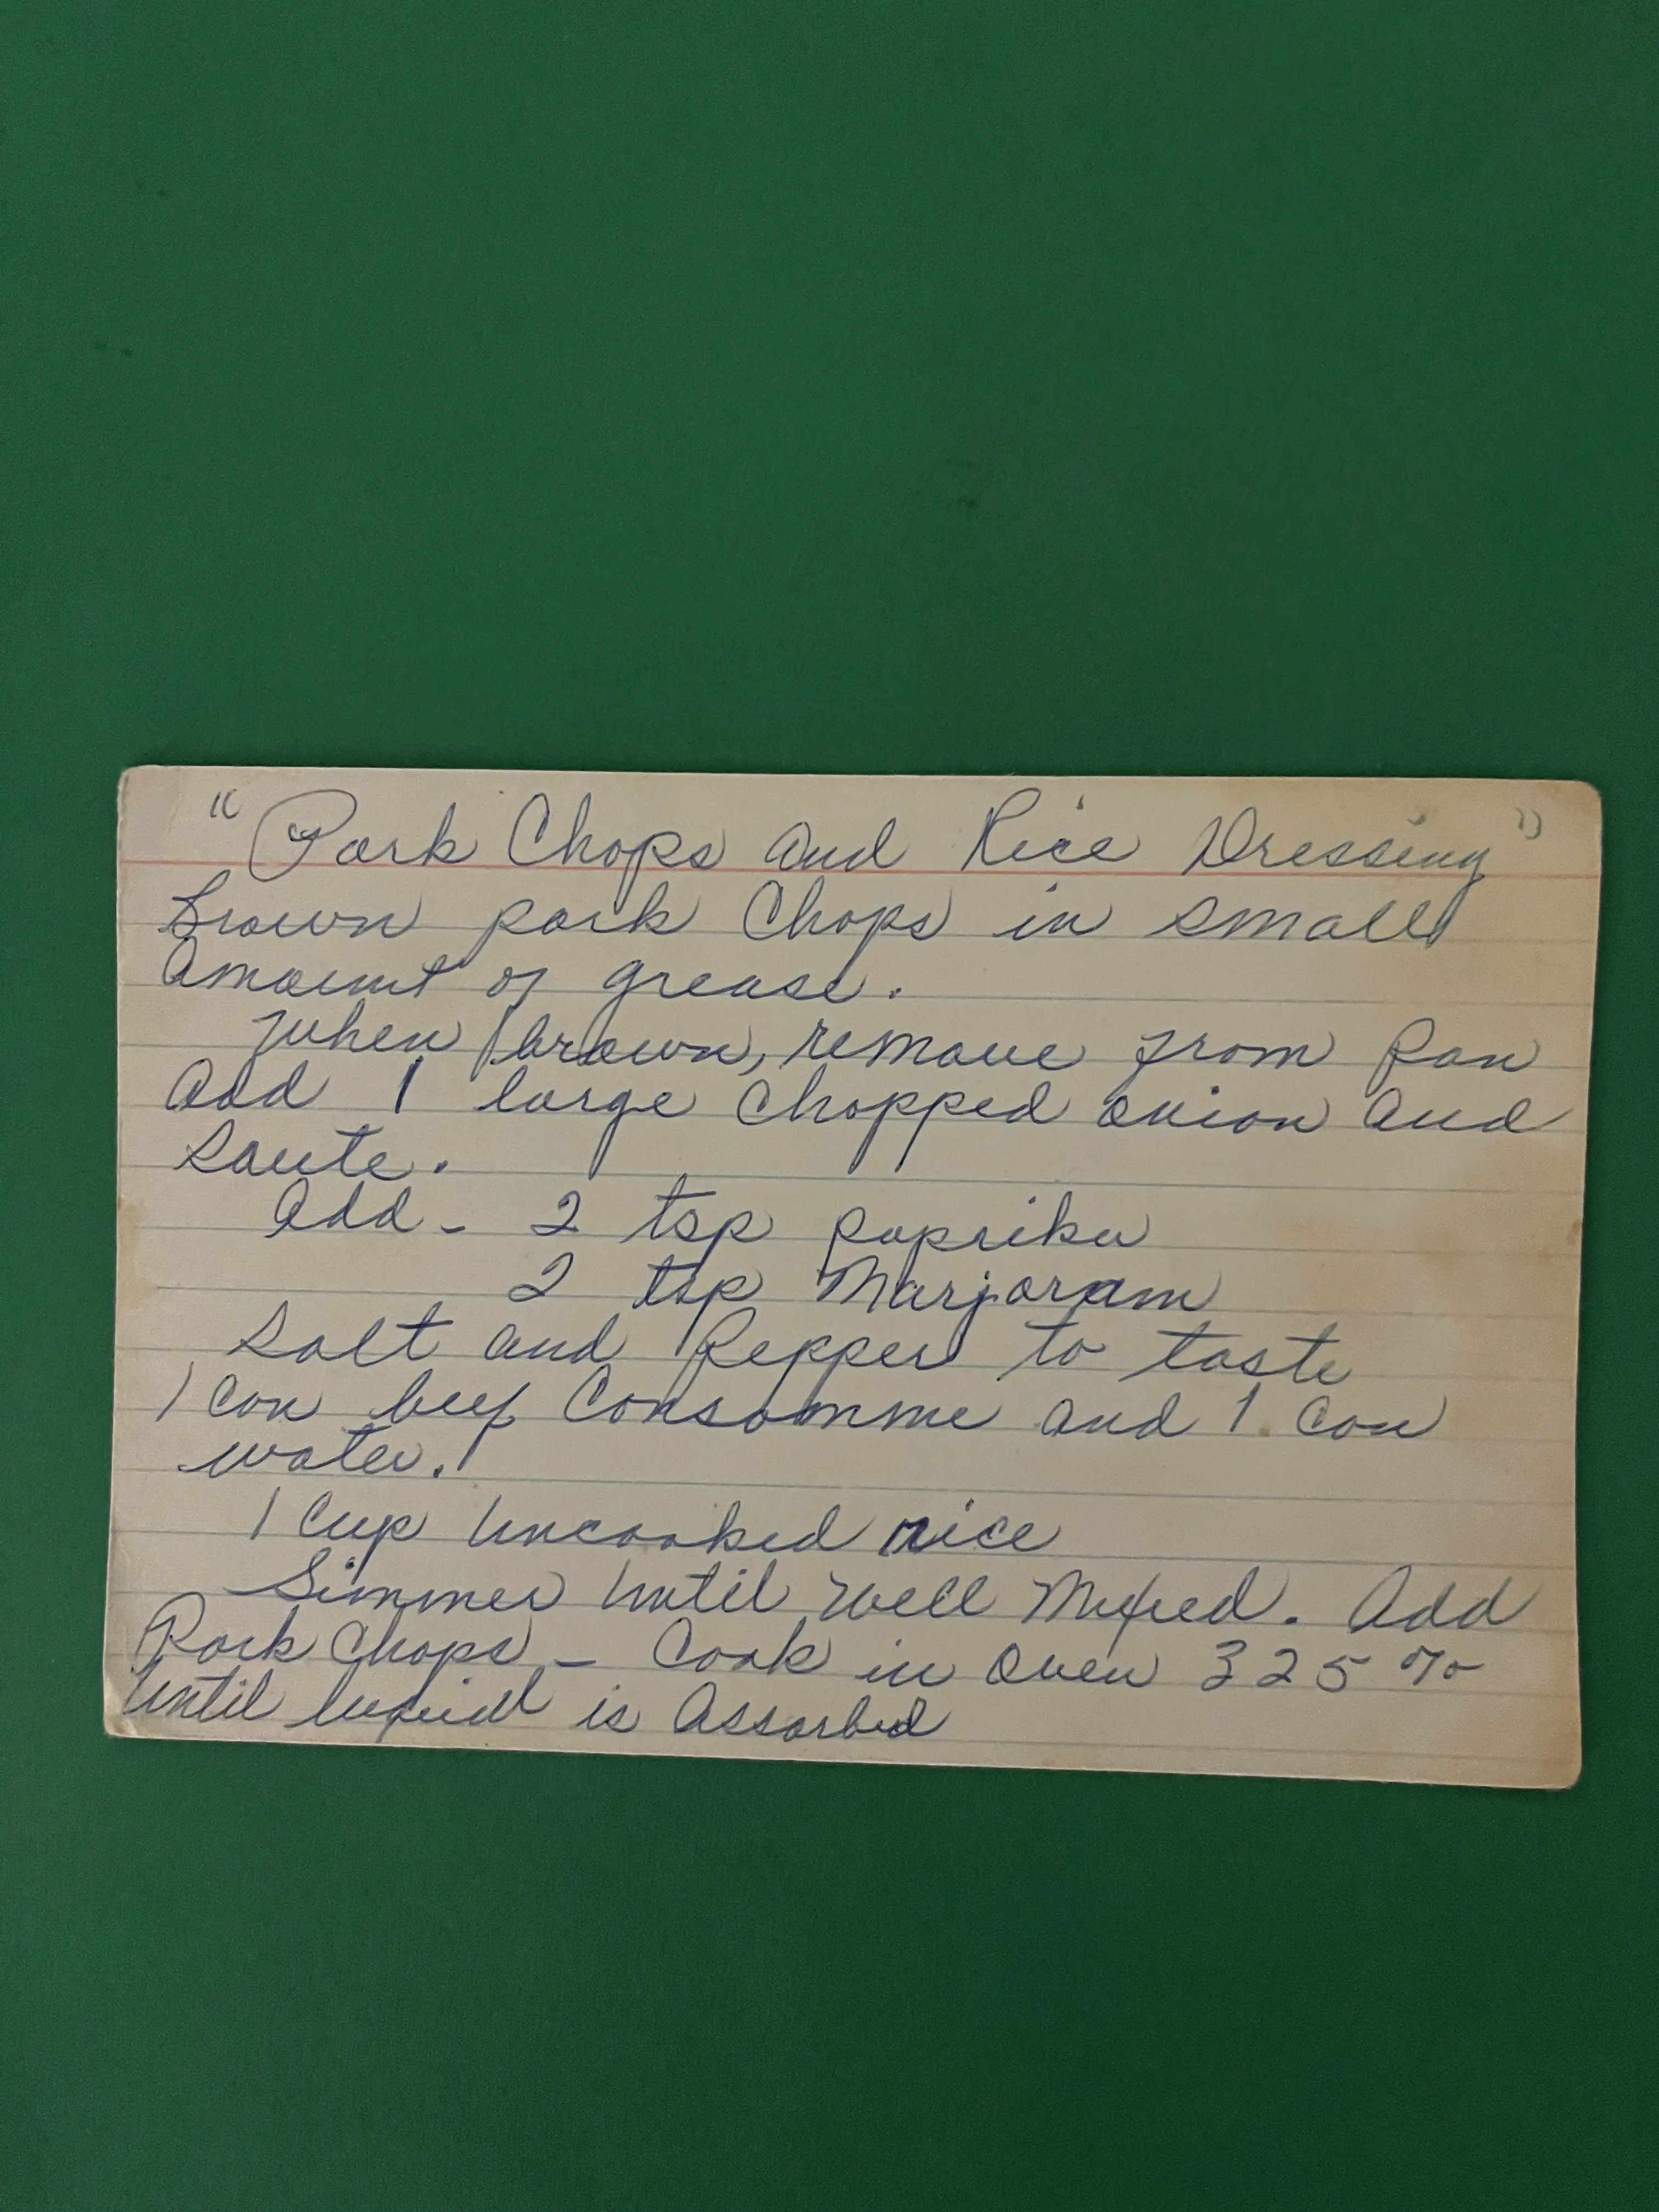 "Pork Chops and Rice Dressing"
Brown pork Chops in small
Amount of grease.
When brown, remove from pan
Add 1 large chopped onion and
saute.
Add - 2 tsp paprika
2 tsp Marjoram
Salt and Pepper to taste
1 can beef Consomme and 1 can
water.
1 Cup Uncooked rice
Simmer Until Well Mixed. Add
Pork Chops - Cook in Oven 325 %
Until liquid is Assorbed